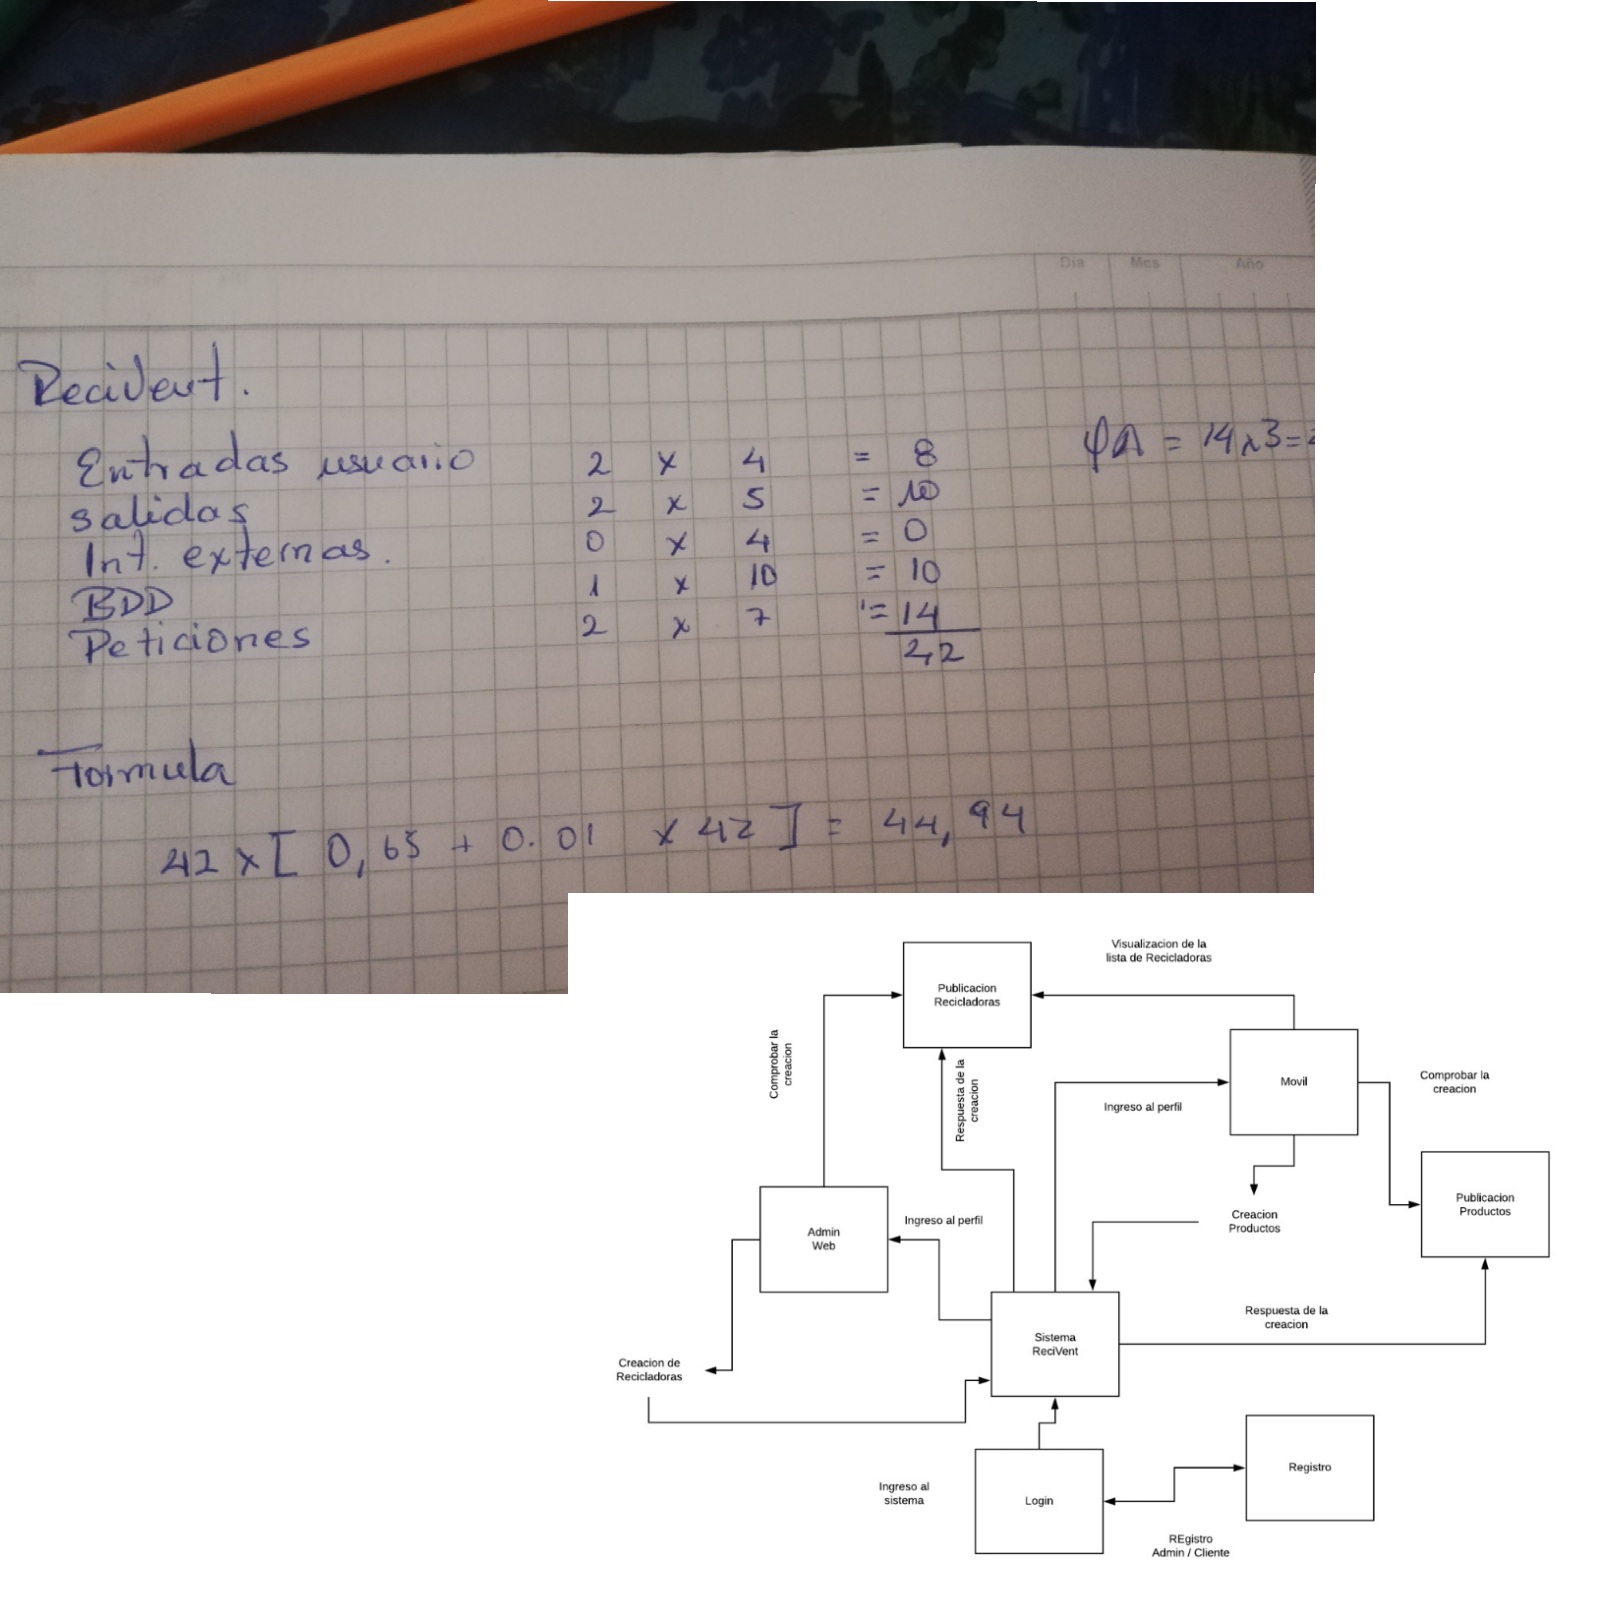 Dia Mes Año
ReciVent.
Entradas usuario 2 x 4 = 8
φA = 14x3=
salidas 2 x 5 = 10
Int. externas. 0 x 4 = 0
BDD 1 x 10 = 10
Peticiones 2 x 7 = 14
42
Formula
42 x [ 0,65 + 0.01 x 42 ] = 44,94
Visualizacion de la
lista de Recicladoras
Publicacion
Recicladoras
Comprobar la
creacion
Respuesta de la
creacion
Movil
Comprobar la
creacion
Ingreso al perfil
Publicacion
Productos
Creacion
Productos
Ingreso al perfil
Admin
Web
Respuesta de la
creacion
Sistema
ReciVent
Creacion de
Recicladoras
Registro
Ingreso al
sistema
Login
REgistro
Admin / Cliente